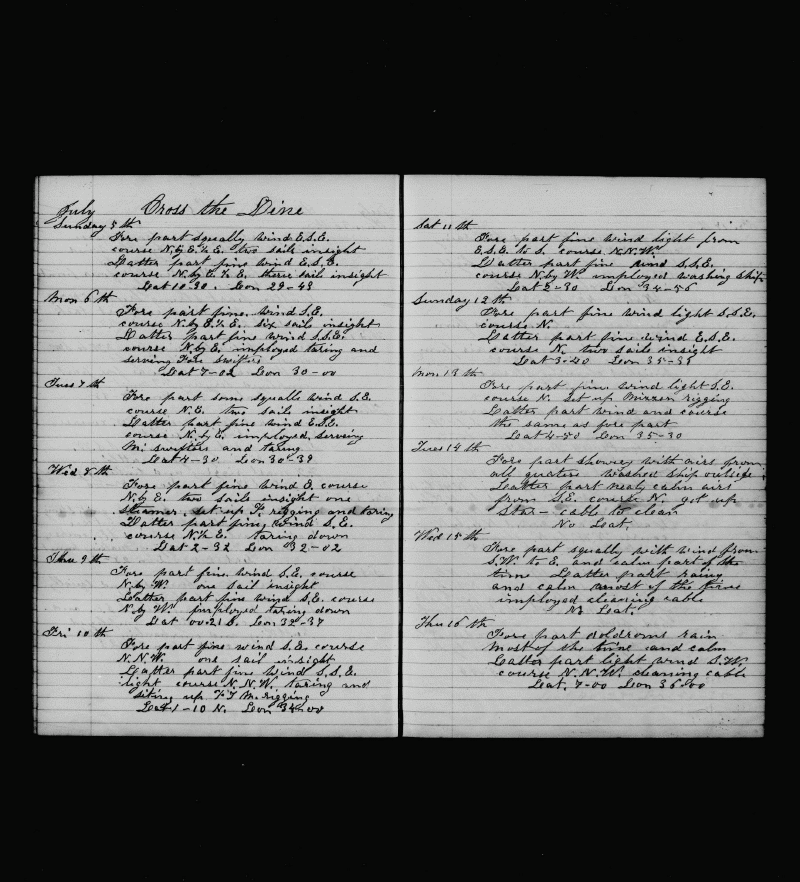 July Cross the Line
Sunday 5th
Fore part squally wind E.S.E.
course N. by E. ½ E. two sails insight
Latter part fine wind E.S.E.
course N. by E. ½ E. three sail insight
Lat 10-30. Lon 29-43
Mon 6th
Fore part fine wind S.E.
course N. by E. ½ E. six sails insight
Latter part fine wind S.S.E.
course N. by E. imployed taring and
serving Fore swifters
Lat 7-02 Lon 30-00
Tues 7th
Fore part some squalls wind S.E.
course N.E. two sails insight
Latter part fine wind E.S.E.
course N. by E. imployed serveing
M. swifters and taring
Lat 4-30 Lon 30-39
Wed 8th
Fore part fine wind E. course
N. by E. two sails insight one
steamer. set up F. rigging and taring
Latter part fine wind S.E.
course N. ½ E. taring down
Lat 2-32 Lon 32-02
Thu 9th
Fore part fine wind S.E. course
N. by W. one sail insight
Latter part fine wind S.E. course
N. by W. imployed taring down
Lat 00.21 S. Lon 32-37
Fri 10th
Fore part fine wind S.E. course
N.N.W. one sail insight
Latter part fine wind S.S.E.
light course N.N.W. taring and
siting up M. rigging
Lat 1-10 N. Lon 34-00
Sat 11th
Fore part fine wind light from
E.S.E. to S. course N.N.W.
Latter part fine wind S.S.E.
course N. by W. imployed washing ship
Lat 2-30 Lon 34-56
Sunday 12th
Fore part fine wind light S.S.E.
course N.
Latter part fine wind E.S.E.
course N. two sails insight
Lat 3-40 Lon 35-33
Mon 13th
Fore part fine wind light S.E.
course N. Set up Mizzen rigging
Latter part wind and course
the same as fore part
Lat 4-50 Lon 35-30
Tues 14th
Fore part showery with airs from
all quarters washed ship outside
Latter part nealy calm airs
from S.E. course N. got up
Star- cable to clean
No Lat.
Wed 15th
Fore part squally with wind from
S.W. to E. and calm part of the
time Latter part rainy
and calm most of the time
imployed cleaning cable
No Lat.
Thu 16th
Fore part doldroms rain
most of the time and calm
Latter part light wind S.W.
course N.N.W. cleaning cable
Lat. 7-00 Lon 36-00